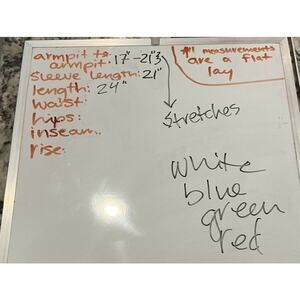 armpit to
armpit: 17" - 21"
sleeve length: 21"
length: 24"
waist:
hips:
inseam:
rise:
measurements
are a flat
lay
stretches
white
blue
green
red